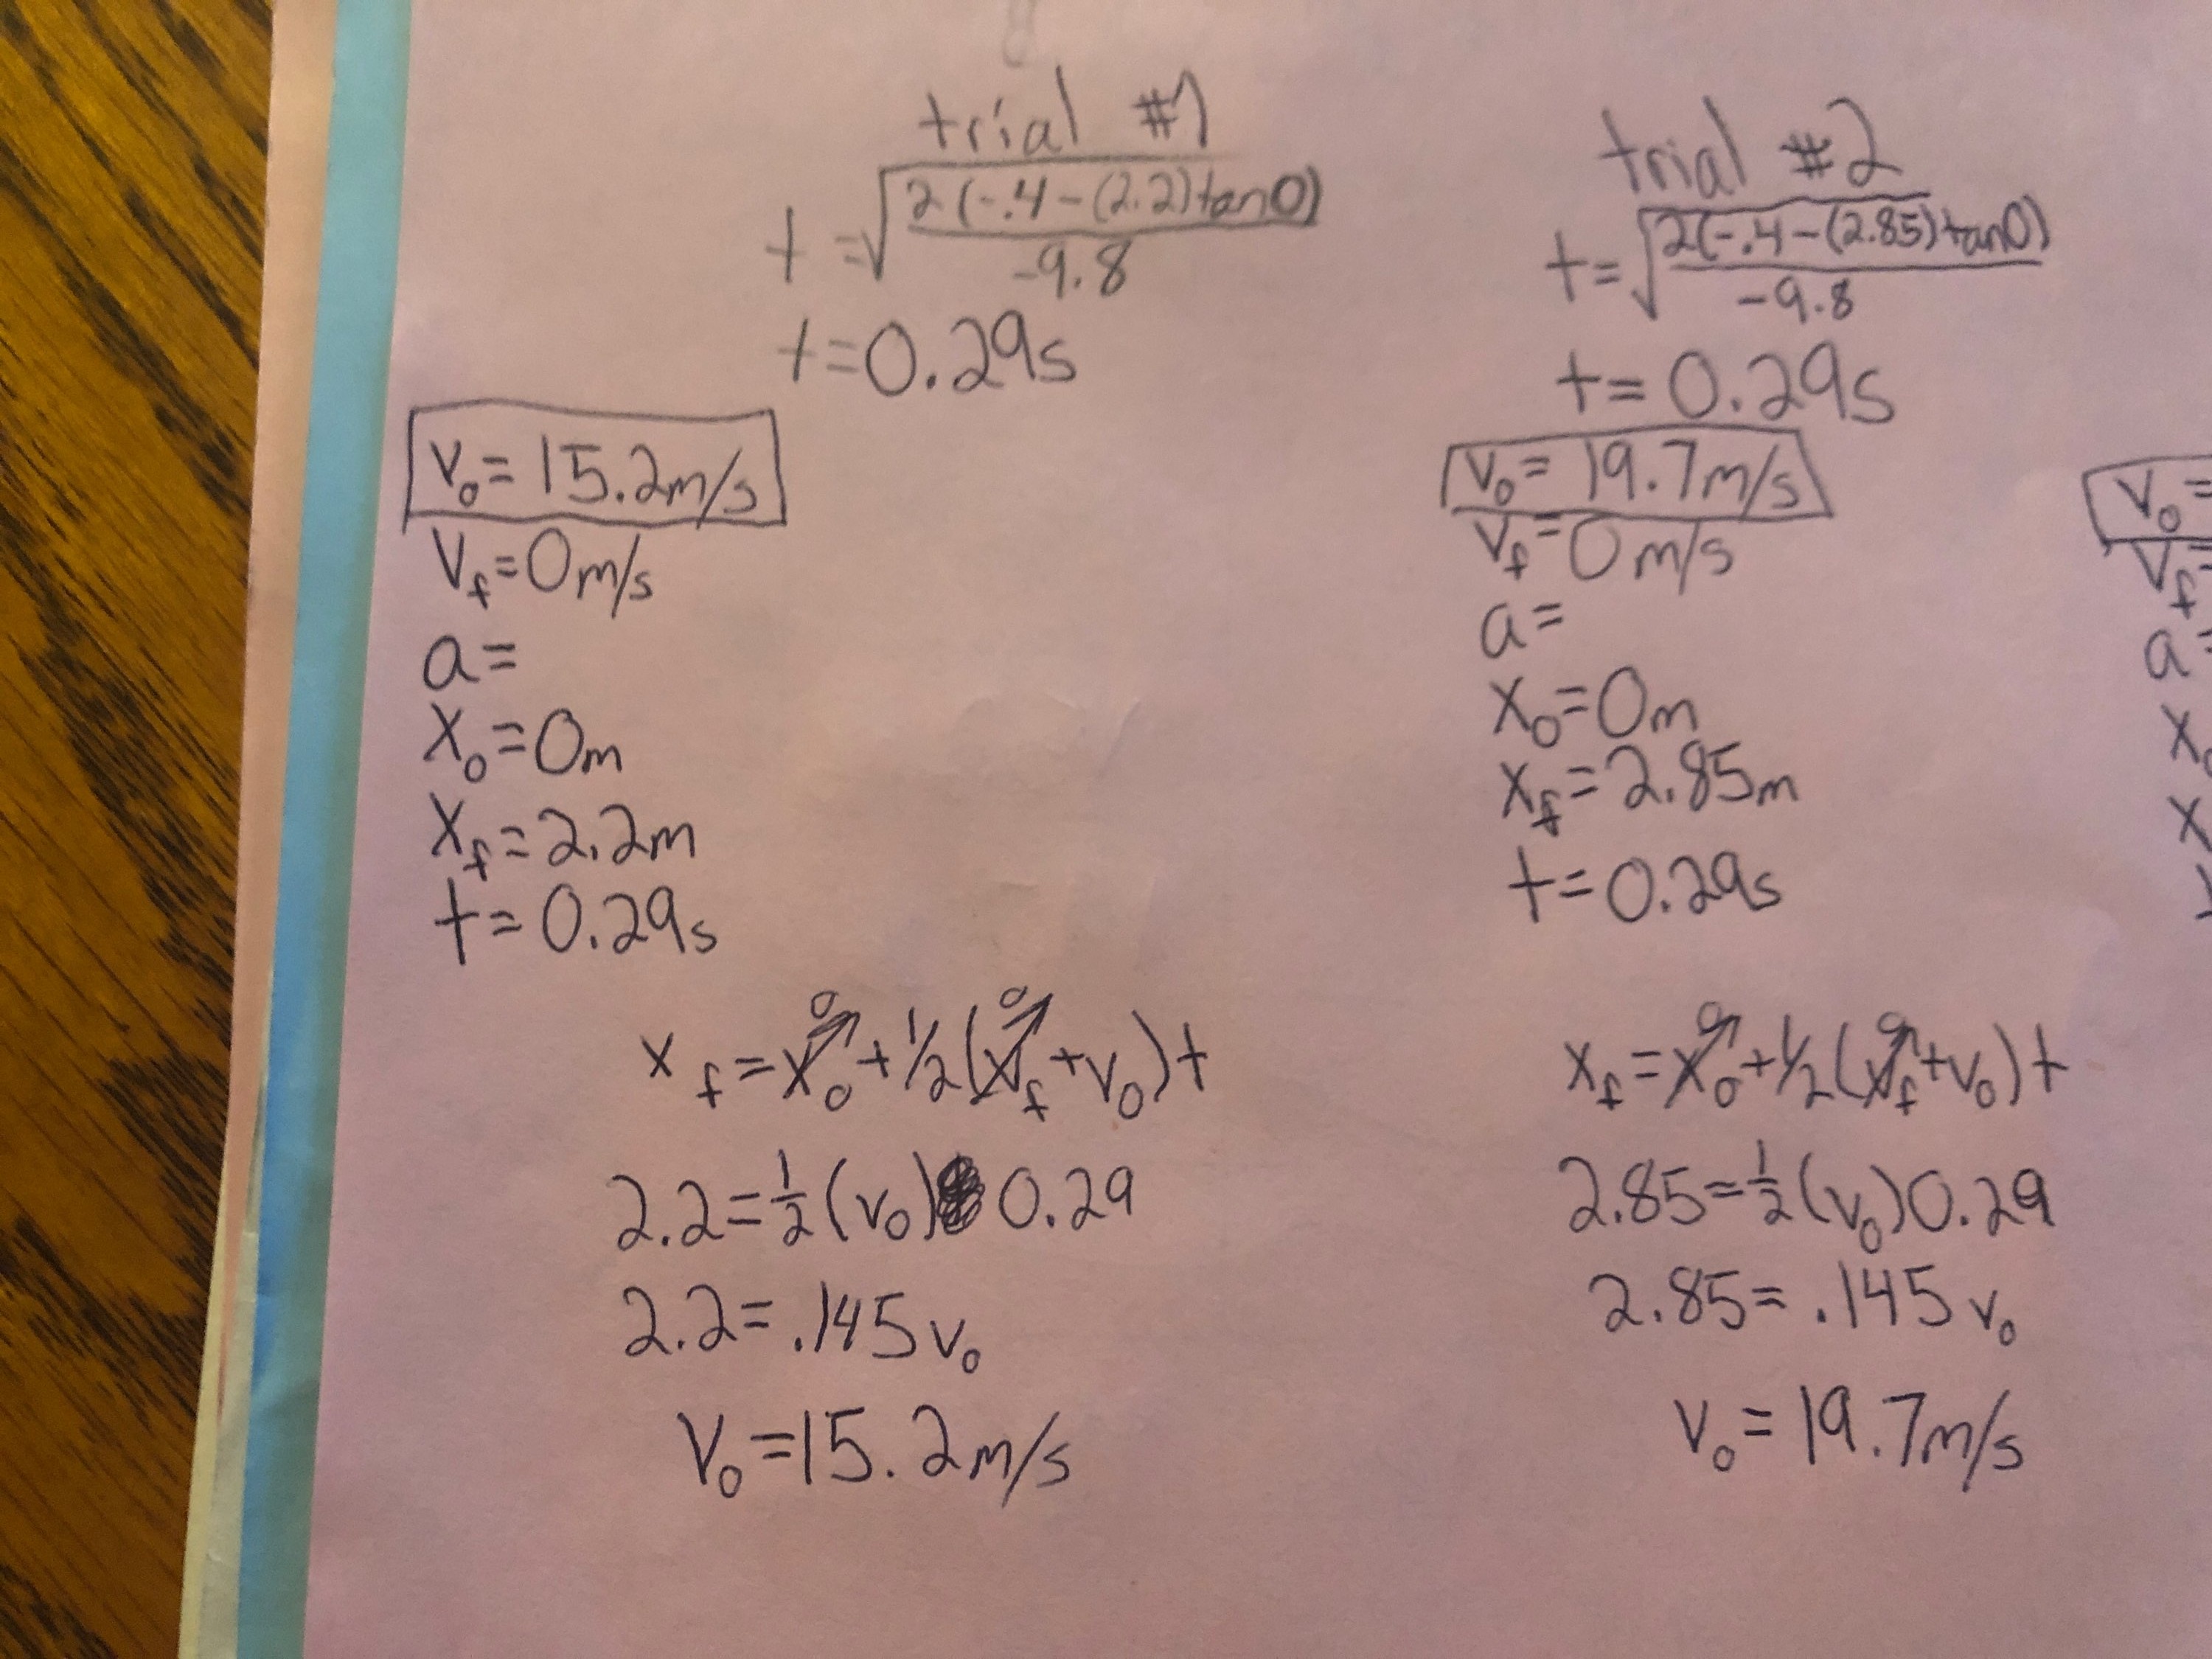 trial #1
t=√2(-.4-(2.2)tan0)
-9.8
t=0.29s
v₀=15.2m/s
v_f=0m/s
a=
x₀=0m
x_f=2.2m
t=0.29s
x_f=x₀+1/2(v_f+v₀)t
0 0
2.2=½(v₀)0.29
2.2=.145v₀
v₀=15.2m/s
trial #2
t=√2(-.4-(2.85)tan0)
-9.8
t=0.29s
v₀=19.7m/s
v_f=0m/s
a=
x₀=0m
x_f=2.85m
t=0.29s
x_f=x₀+1/2(v_f+v₀)t
0 0
2.85=½(v₀)0.29
2.85=.145v₀
v₀=19.7m/s
v₀=
v_f=
a=
x₀
x